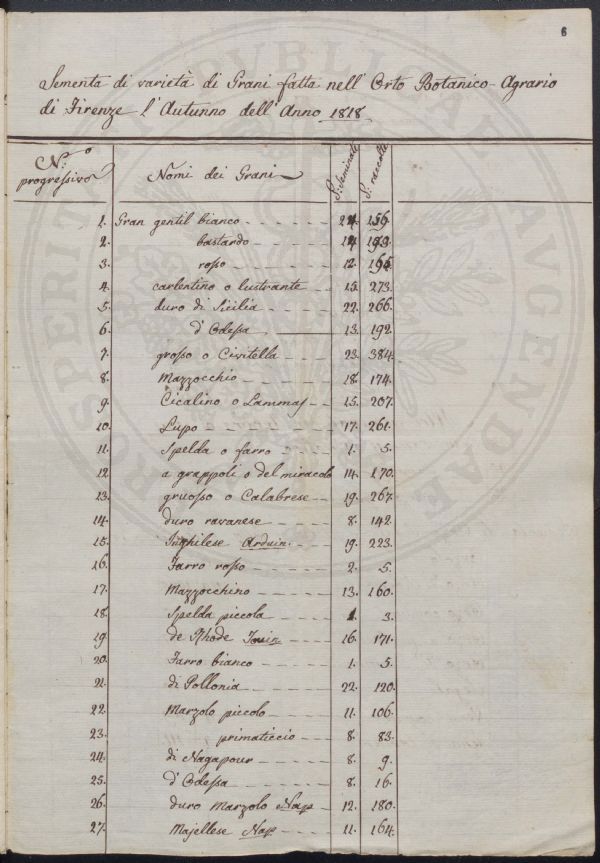 6
Sementa di varietà di Grani fatta nell' Orto Botanico-Agrario
di Firenze l'Autunno dell'Anno 1818
N.o progressivo Nomi dei Grani S. seminate S. raccolte
1. Gran gentil bianco 156.
2. bastardo
3. rosso 12.
4. carlentino o lustrante 15. 273.
5. duro di Sicilia 22. 266.
6. d'Odessa 13. 192.
7. grosso o Civitella 23. 384.
8. Mazzocchio 18. 174.
9. Cicalino o Lammas 15. 207.
10. Lupo 17. 261.
11. Spelda o farro 1. 5.
12. a grappoli o del miracolo 14. 170.
13. gruosso o Calabrese 19. 267.
14. duro ravanese 8. 142.
15. Inghilese Arduin. 19. 223.
16. Farro rosso 2. 5.
17. Mazzocchino 13. 160.
18. Spelda piccola 1. 3.
19. de Rhode 16. 171.
20. Farro bianco 1. 5.
21. di Pollonia 22. 120.
22. Marzolo piccolo 11. 106.
23. primaticcio 8. 83.
24. di Nagapour 8. 9.
25. d'Odessa 8. 16.
26. duro Marzolo Nap 12. 180.
27. Majellese Nap 11. 164.
PROSPERITATI PUBLICAE AUGENDAE